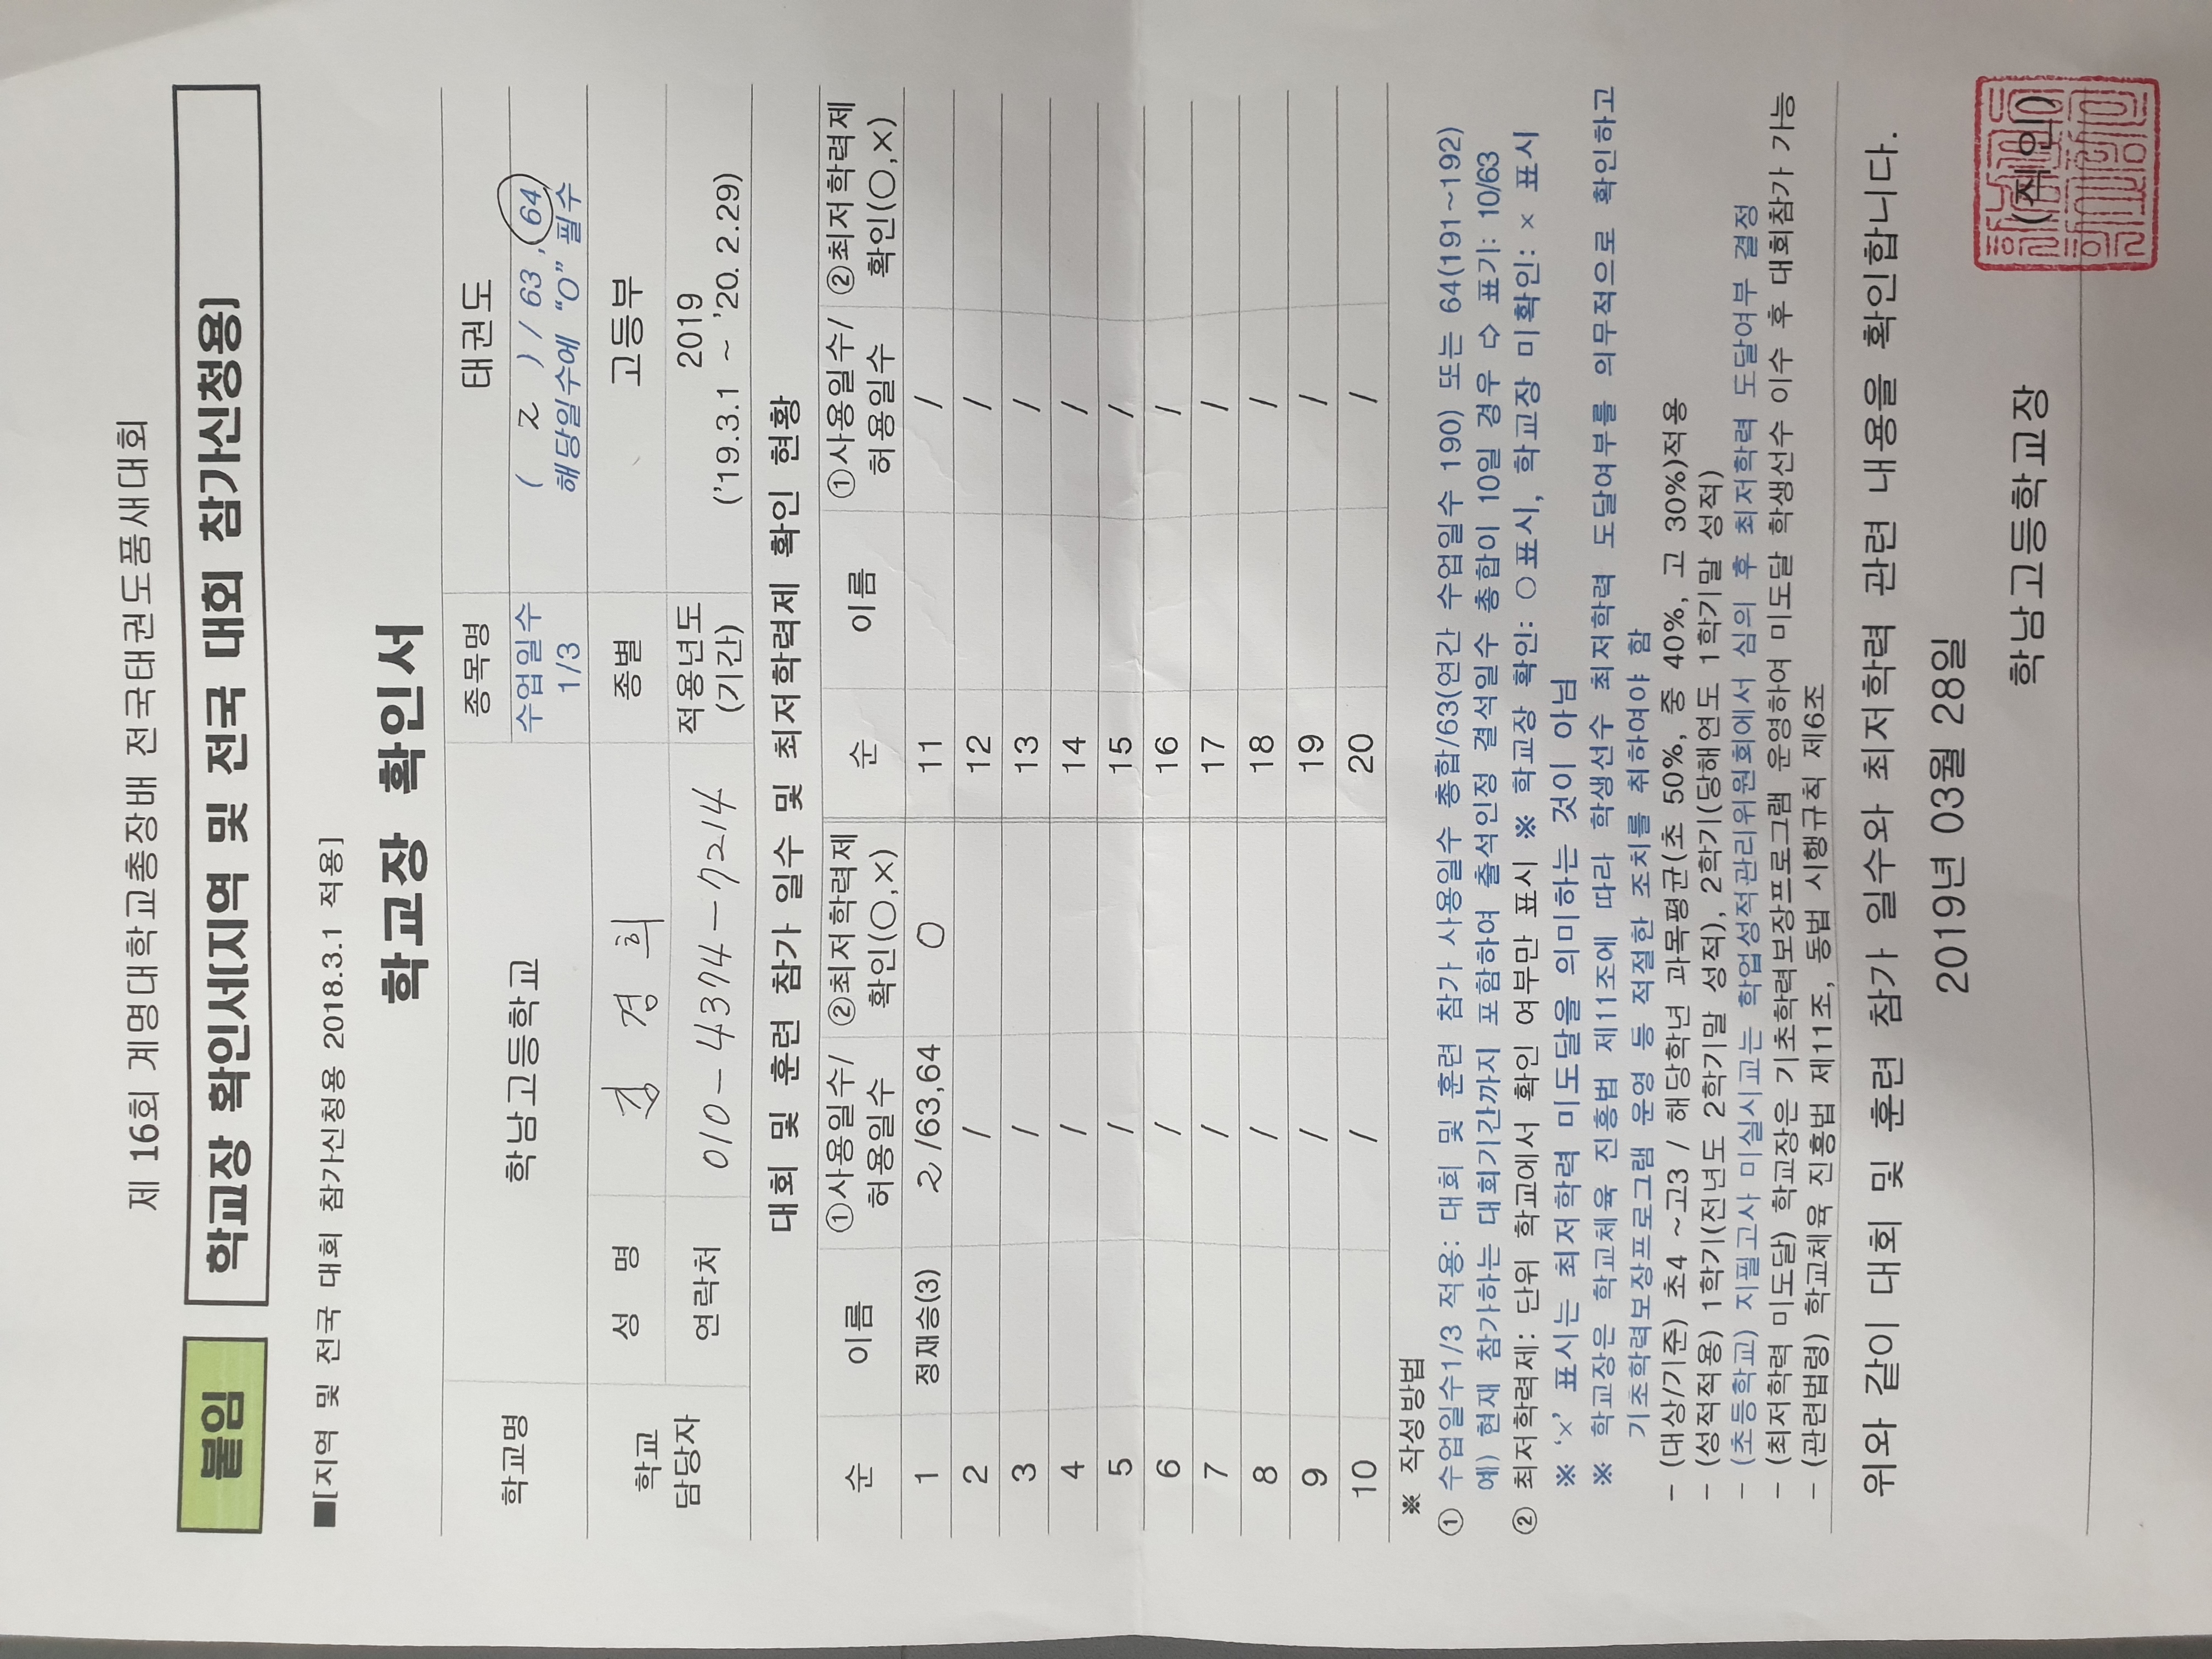 제 16회 계명대학교총장배 전국태권도품새대회
붙임 학교장 확인서[지역 및 전국 대회 참가신청용]
■[지역 및 전국 대회 참가신청용 2018.3.1 적용]
학교장 확인서
학교명 학남고등학교 종목명 태권도
수업일수 1/3 ( 2 ) / 63 , 64
해당일수에 "O" 필수
학교 담당자 성 명 김 경 희 종별 고등부
연락처 010-4374-7214 적용년도 (기간) 2019
('19.3.1 ~ '20. 2.29)
대회 및 훈련 참가 일수 및 최저학력제 확인 현황
순 이름 ①사용일수/허용일수 ②최저학력제 확인(○,×) 순 이름 ①사용일수/허용일수 ②최저학력제 확인(○,×)
1 정재승(3) 2/63,64 O 11 /
2 / 12 /
3 / 13 /
4 / 14 /
5 / 15 /
6 / 16 /
7 / 17 /
8 / 18 /
9 / 19 /
10 / 20 /
※ 작성방법
① 수업일수1/3 적용: 대회 및 훈련 참가 사용일수 총합/63(연간 수업일수 190) 또는 64(191~192)
예) 현재 참가하는 대회기간까지 포함하여 출석인정 결석일수 총합이 10일 경우 ⇨ 표기: 10/63
② 최저학력제: 단위 학교에서 확인 여부만 표시 ※ 학교장 확인: ○표시, 학교장 미확인: × 표시
※ '×' 표시는 최저학력 미도달을 의미하는 것이 아님
※ 학교장은 학교체육 진흥법 제11조에 따라 학생선수 최저학력 도달여부를 의무적으로 확인하고
기초학력보장프로그램 운영 등 적절한 조치를 취하여야 함
- (대상/기준) 초4 ~고3 / 해당학년 과목평균(초 50%, 중 40%, 고 30%)적용
- (성적적용) 1학기(전년도 2학기말 성적), 2학기(당해연도 1학기말 성적)
- (초등학교) 지필고사 미실시교는 학업성적관리위원회에서 심의 후 최저학력 도달여부 결정
- (최저학력 미도달) 학교장은 기초학력보장프로그램 운영하여 미도달 학생선수 이수 후 대회참가 가능
- (관련법령) 학교체육 진흥법 제11조, 동법 시행규칙 제6조
위와 같이 대회 및 훈련 참가 일수와 최저학력 관련 내용을 확인합니다.
2019년 03월 28일
학남고등학교장 (직인)